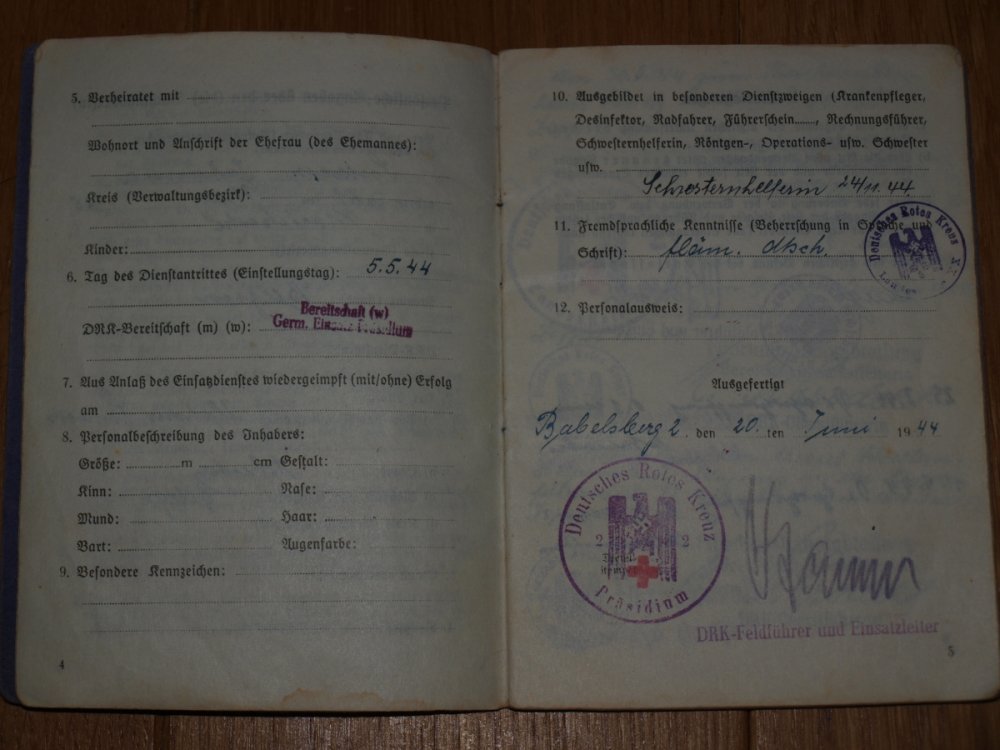 5. Verheiratet mit
Wohnort und Anschrift der Ehefrau (des Ehemannes):
Kreis (Verwaltungsbezirk):
Kinder:
6. Tag des Dienstantrittes (Einstellungstag): 5.5.44
Bereitschaft (w)
DRK-Bereitschaft (m) (w): Germ.
7. Aus Anlaß des Einsatzdienstes wiedergeimpft (mit/ohne) Erfolg
am
8. Personalbeschreibung des Inhabers:
Größe: m cm Gestalt:
Kinn: Nase:
Mund: Haar:
Bart: Augenfarbe:
9. Besondere Kennzeichen:
4
10. Ausgebildet in besonderen Dienstzweigen (Krankenpfleger,
Desinfektor, Radfahrer, Führerschein......, Rechnungsführer,
Schwesternhelferin, Röntgen-, Operations- usw. Schwester
usw.
Schwesternhelferin 24/11.44.
11. Fremdsprachliche Kenntnisse (Beherrschung in Sprache und
Schrift): fläm. dtsch.
Deutsches Rotes Kreuz
12. Personalausweis:
Ausgefertigt
Babelsberg 2, den 20.ten Juni 1944
Deutsches Rotes Kreuz
2 2
Präsidium
DRK-Feldführer und Einsatzleiter
5